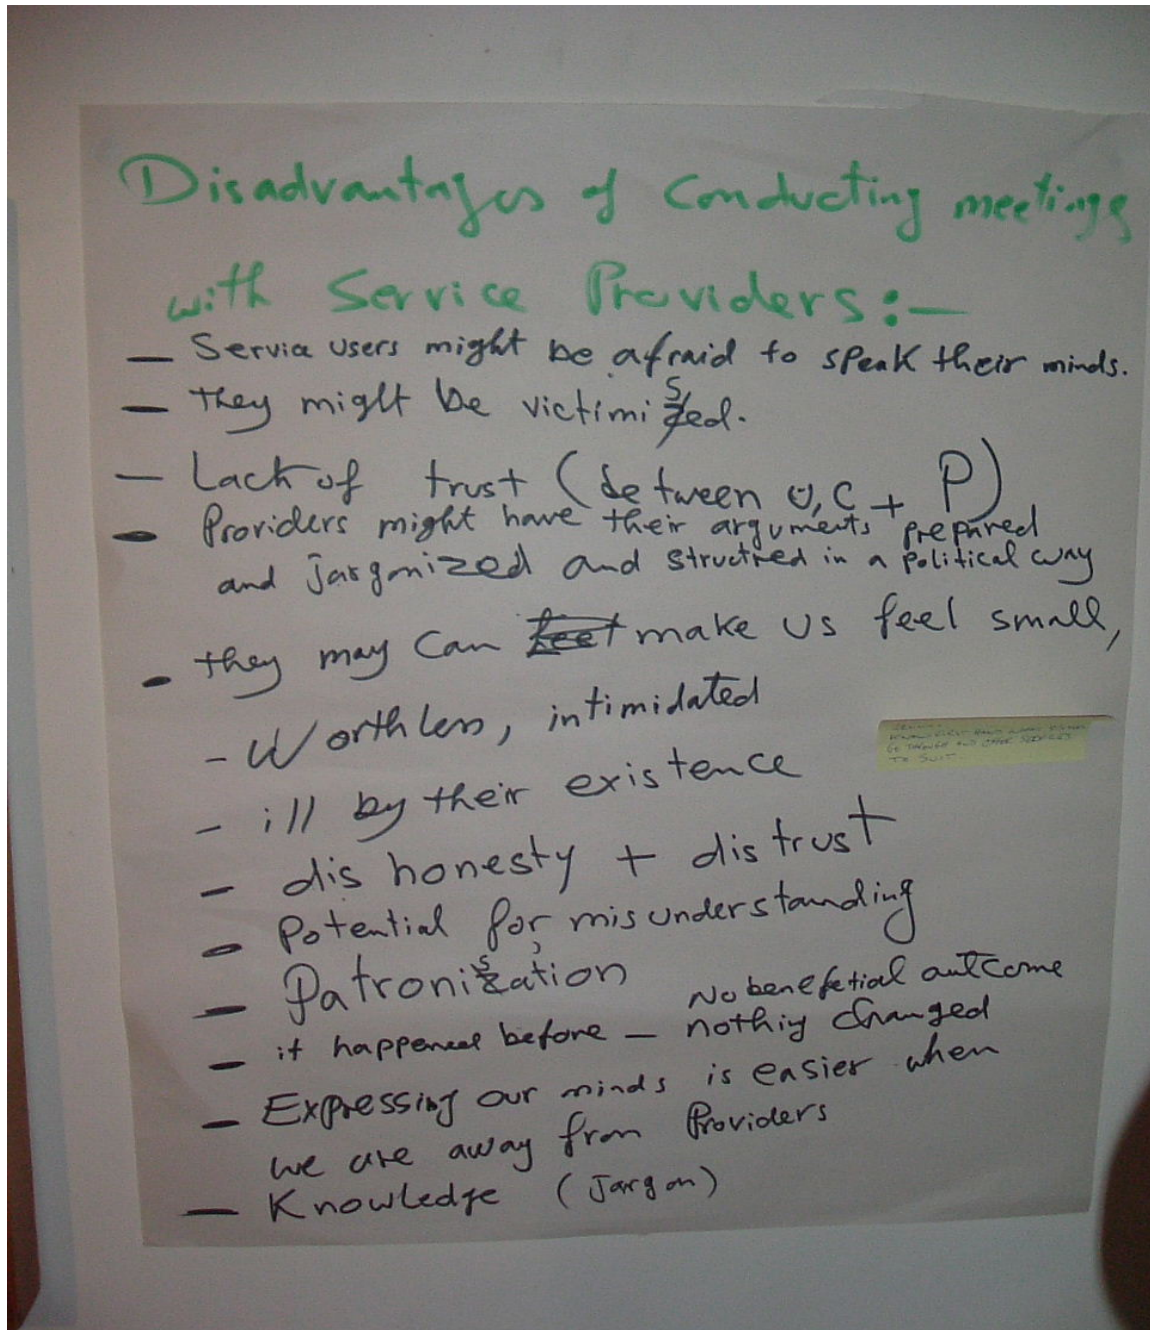 Disadvantages of Conducting meetings
with Service Providers:—
— Service users might be afraid to speak their minds.
— they might be victimised.
— Lack of trust (between U, C + P)
- Providers might have their arguments prepared
and Jargonized and structred in a political way
- they may can make us feel small,
- Worthless, intimidated
- ill by their existence
- dis honesty + distrust
- Potential for misunderstanding
- Patronisation
- it happened before — nothing changed
No benefetial outcome
- Expressing our minds is easier when
we are away from Providers
- Knowledge (Jargon)
TO SUIT